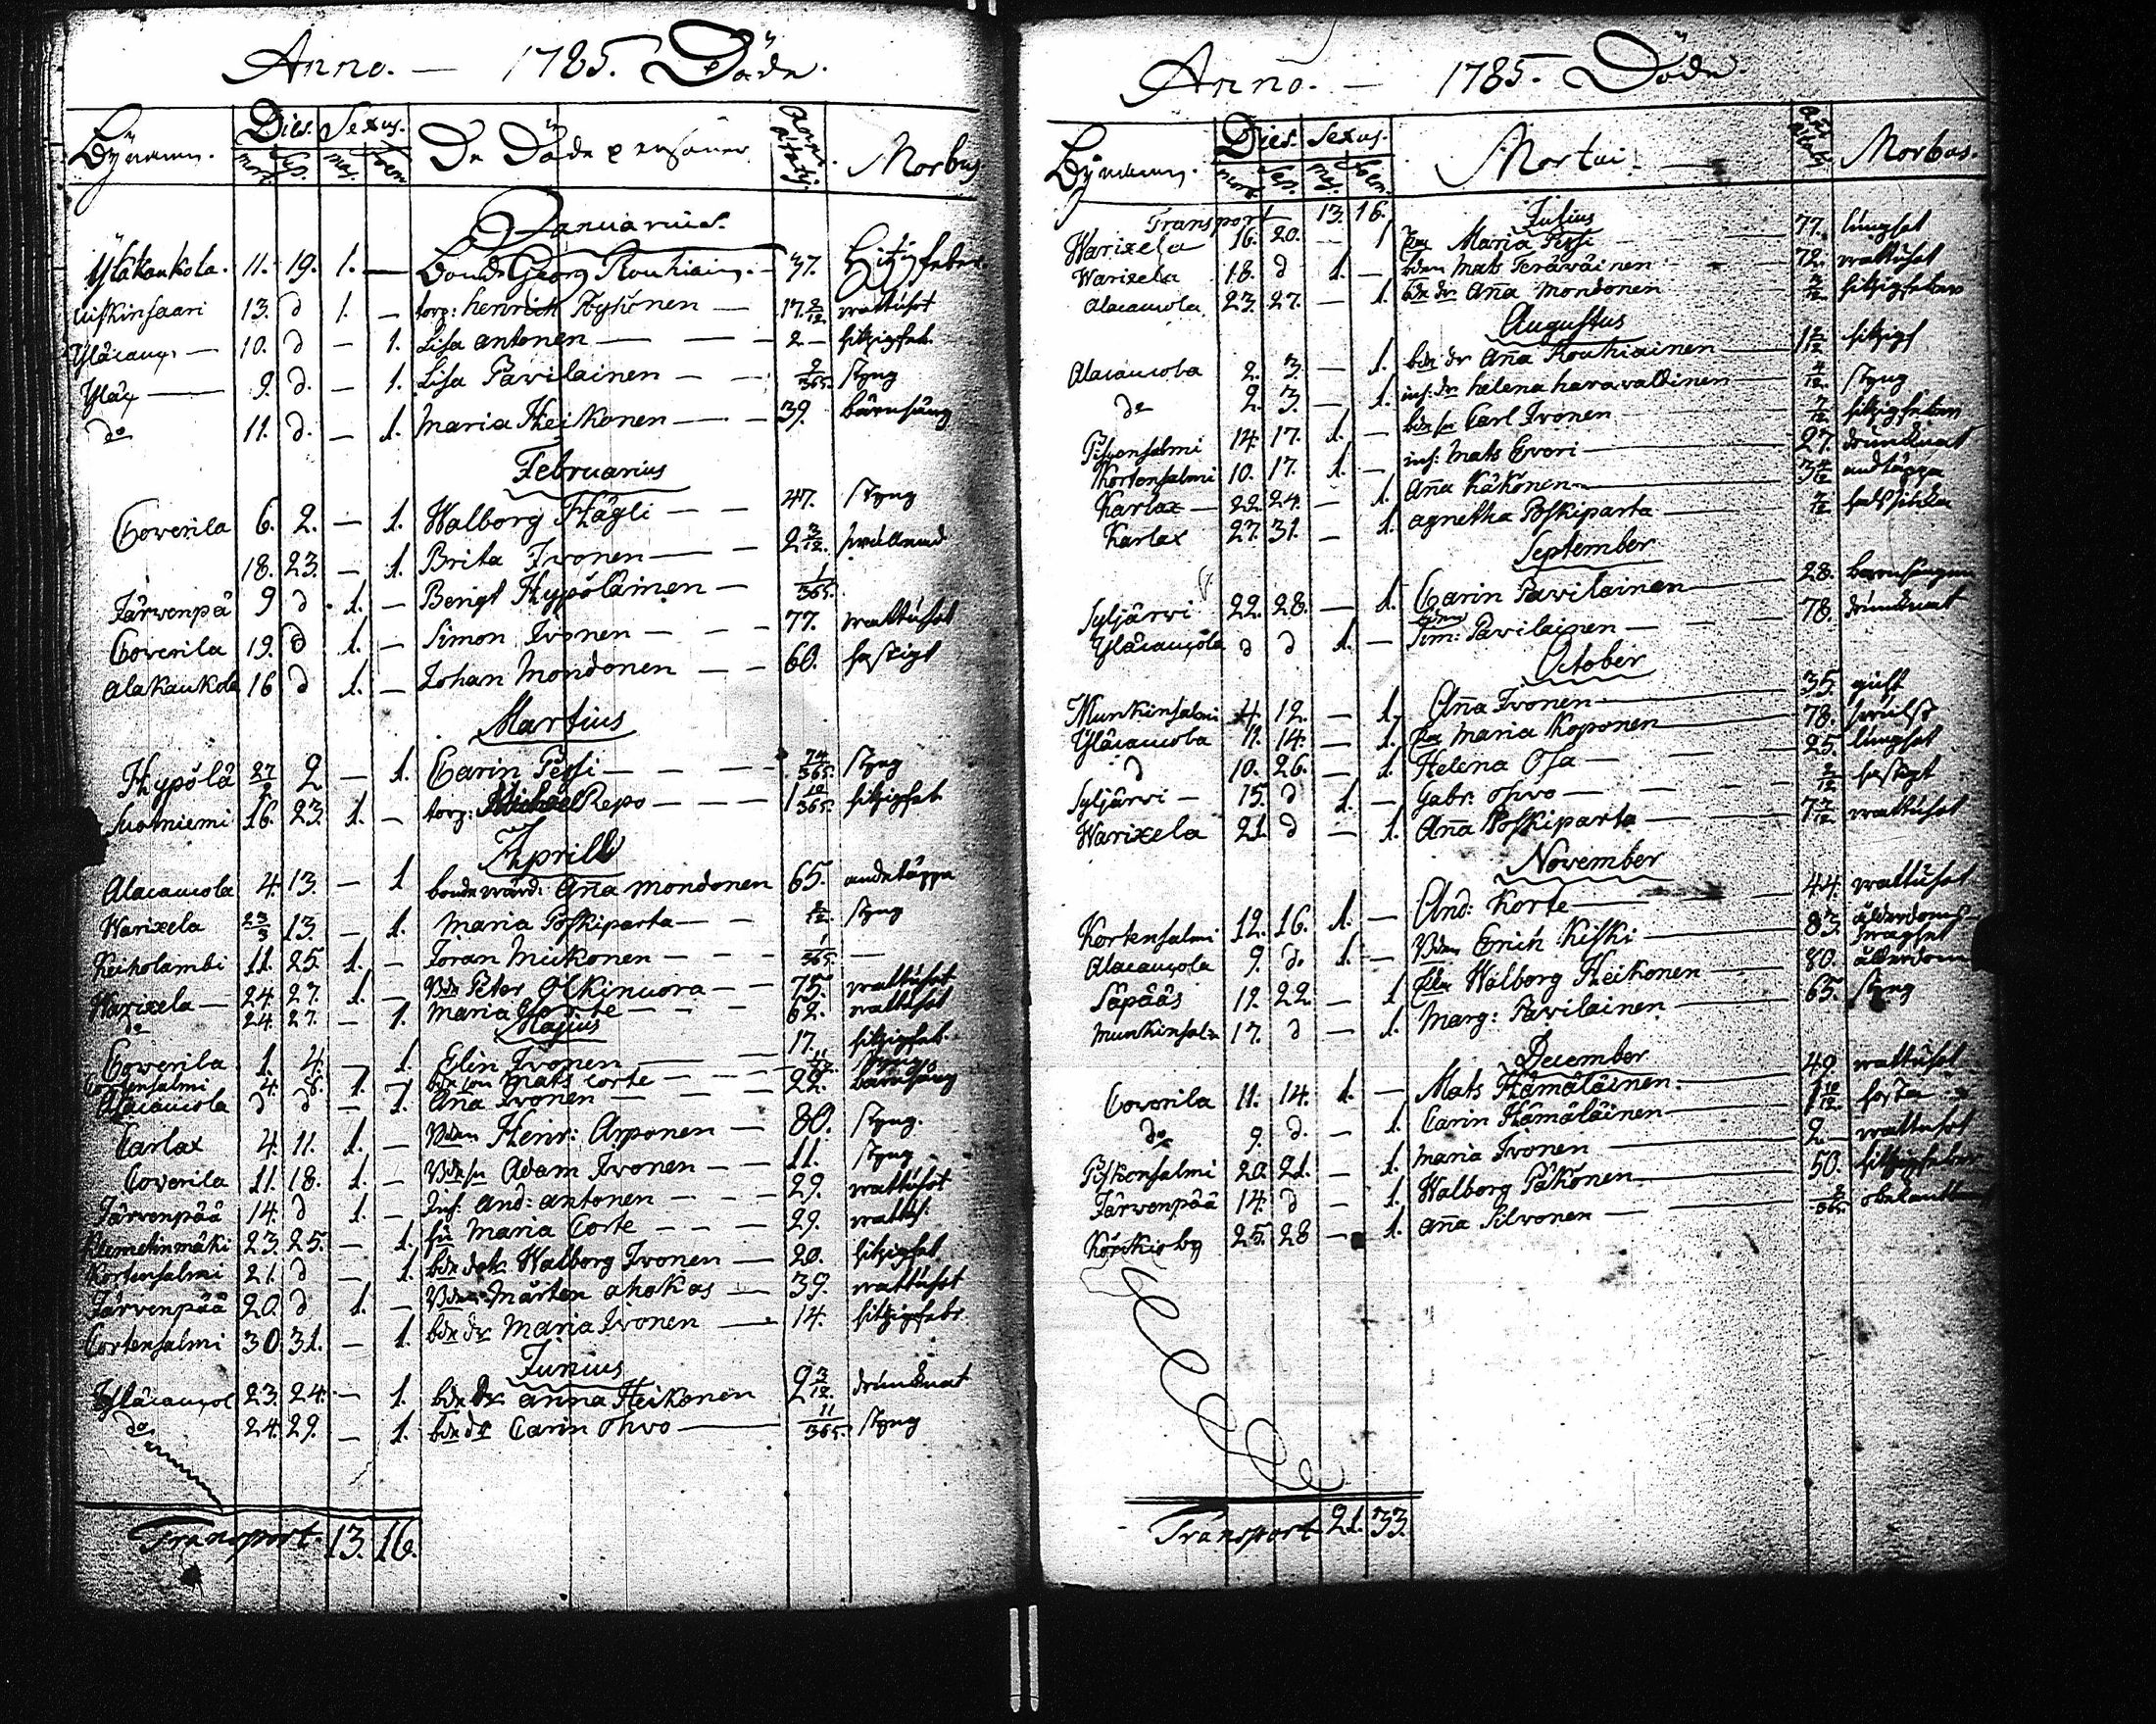 Anno. — 1785. Döde.
Byarnen. Dies. Sexus. De Döde personer Anni ætatis Morbus
mort. sep. mas. foem.
Januarius.
Yläkaukola. 11. 19. 1. — Bonde Georg Rouhiain. — 37. Hitzigfeber
13. d 1. — torp: Henrich Hyöhönen — 17 2/12 wattusot
Yläcauc — 10. d — 1. Lisa Antonen — — — 2 — hitzigfeb.
Yläc — 9. d. — 1. Lisa Pavilainen — — 2/365. styng
do 11. d. — 1. Maria Heikonen — — 39. barnsäng
Februarius
Coverila 6. 2. — 1. Walborg Hägli — — 47. styng
18. 23. — 1. Brita Ivonen — — 2 3/12.
Järvenpä 9 d 1. — Bengt Hypöläinen — 1/365.
Coverila 19. d 1. — Simon Ivonen — — — 77. wattusot
Alakaukola 16 d 1. — Johan Mondonen — — 60. hastigt
Martius
Hypölä 27/2 2 — 1. Carin Pessi — — — 74/365. styng
Suorniemi 16. 23. 1. — torp: Michael Repo — — — 1 10/365. hitzigfeb.
Aprill
Alacaucola 4. 13. — 1 bonde wärd. Aña Mondonen 65. andetäppa
Warixela 23/3 13 — 1. Maria Poskiparta — — 2/12. styng
Keiholambi 11. 25. 1. — Jöran Mukonen — — — 1/365. —
Warixela — 24. 27. 1. — Bde Peter Olkinuora — — 75. wattusot
do 24. 27. — 1. Maria Corte — — — 62. wattusot
Majus
Coverila 1. 4. — 1 Elin Ivonen — — 17. hitzigfeb.
Cortensalmi 4. 8. 1. — bde son Mats Corte — — styng
Alacaucola d d — 1. Aña Ivonen — — — 22. barnsäng
Carlax 4. 11. 1. — Bden Henr: Arponen — 80. styng.
Coverila 11. 18. 1. — Bde sn Adam Ivonen — — 11. styng
Järvenpää 14. d 1. — Inh. And: Antonen — — — 29. wattusot
Klemetinmäki 23. 25. — 1. hu Maria Corte — — — 29. wattus.
Kortensalmi 21. d — 1. bde dotr Walborg Ivonen — 20. hitzigfeb
Järvenpää 20. d 1. — Bden Mårten Ahokas — 39. wattusot
Cortensalmi 30. 31. — 1. bde dr Maria Ivonen — 14. hitzigfebr.
Junius
Yläcaucol 23. 24. — 1. bde dr Anna Heikonen 2 3/12. drunknat
do 24. 29. — 1. bde dr Carin Ohvo — 11/365. styng
Transport. 13. 16.
Anno. — 1785. Döde.
Byarnen. Dies. Sexus. Mortui. Morbus.
mort. sep. mas. foem.
Transport 13. 16. Julius
Warixela 16. 20. — 1 Maria Pessi 77. lungsot
Warixela 18. d 1. — bden Mats Teräväinen 72. wattusot
Alacaucola 23. 27. — 1. bde dr Aña Mondonen 3/12 hitzigfeber
Augustus
Alacaucola 2. 3. — 1. bde dr Aña Rouhiainen — hitzigf
do 2. 3. — 1. inh. dr Helena Haravaldinen — 4/12. styng
Piskensalmi 14. 17. 1. — bde sn Carl Ivonen 7/12 hitzigfeber
Kortensalmi 10. 17. 1. — inh: Mats Evori — 27. drunknat
Karlax — 22. 24. — 1. Aña Käkönen — andtäppa
Karlax 27. 31. — 1. Agnetha Poskiparta — 7/12
September
Syljärvi 22. 28. — 1. Carin Pavilainen — 28. barnsängen
Yläcaucola d d 1. — bden Sim: Pavilainen — 78. drunknat
October
Munkinsalmi 4. 12. — 1. Aña Ivonen — 35. gickt
Yläcaucola 11. 14. — 1. Maria Koponen — 78.
d 10. 26. — 1. Helena Osa — 25. lungsot
Syljärvi — 15. d 1. — Gabr: Ohvo — 2/12 hastigt
Warixela 21. d — 1. Aña Poskiparta — 7 7/12 wattusot
November
Kortensalmi 12. 16. 1. — And: Korte — 44. wattusot
Alacaucola 9. d. 1. — Bden Erich Kiski — 83. ålderdoms-
swaghet
Säpääs 12. 22. — 1 Walborg Heikonen — 80. ålderdom
Munkinsalm 17. d — 1. Marg: Pavilainen — 65. styng
December
Coverila 11. 14. 1. — Mats Hämäläinen. — 49. wattusot
do 9. d. — 1. Carin Hämäläinen — 1 10/12. hosta
Piskensalmi 20. 21. — 1. Maria Ivonen — 2 — wattusot
Järvenpää 14. d — 1. Walborg Päkönen — 50. hitzigfeber
25. 28 — 1. Aña Silvonen — 2/365. obekant
Transport 21. 33.